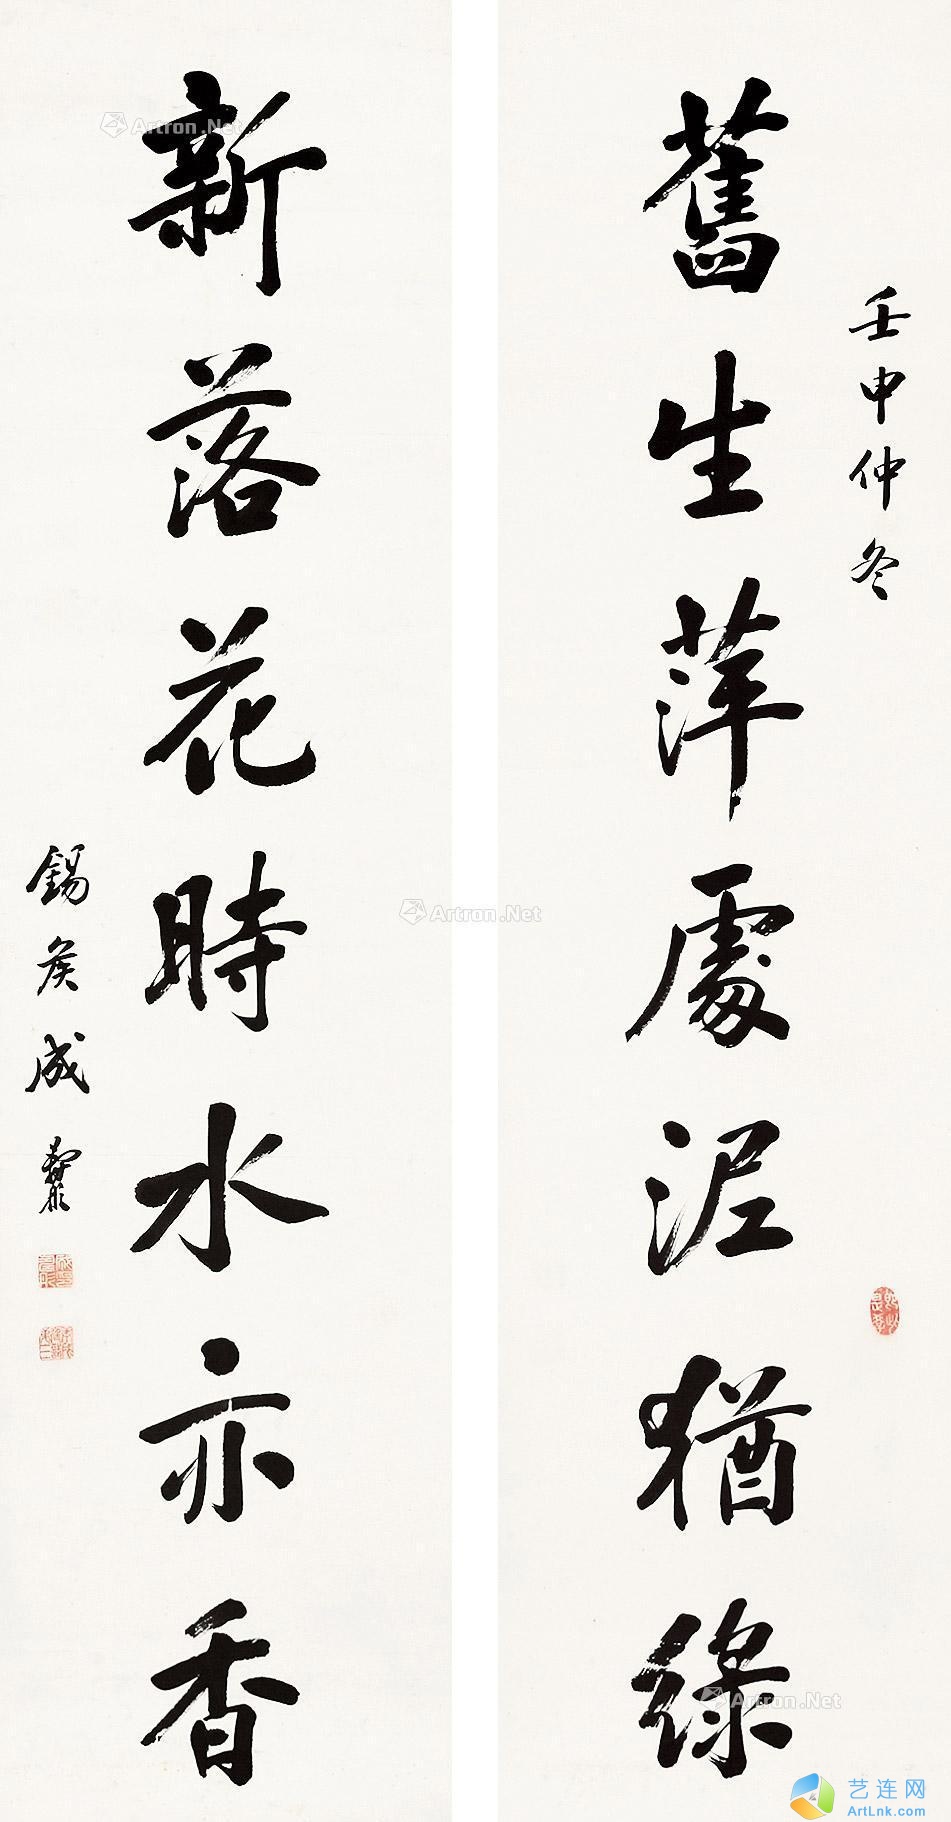 壬申仲冬
舊生萍處泥猶綠
新落花時水亦香
錫侯成
Artron.Net
Artron.Net
Artron.Net
艺连网
ArtLnk.com